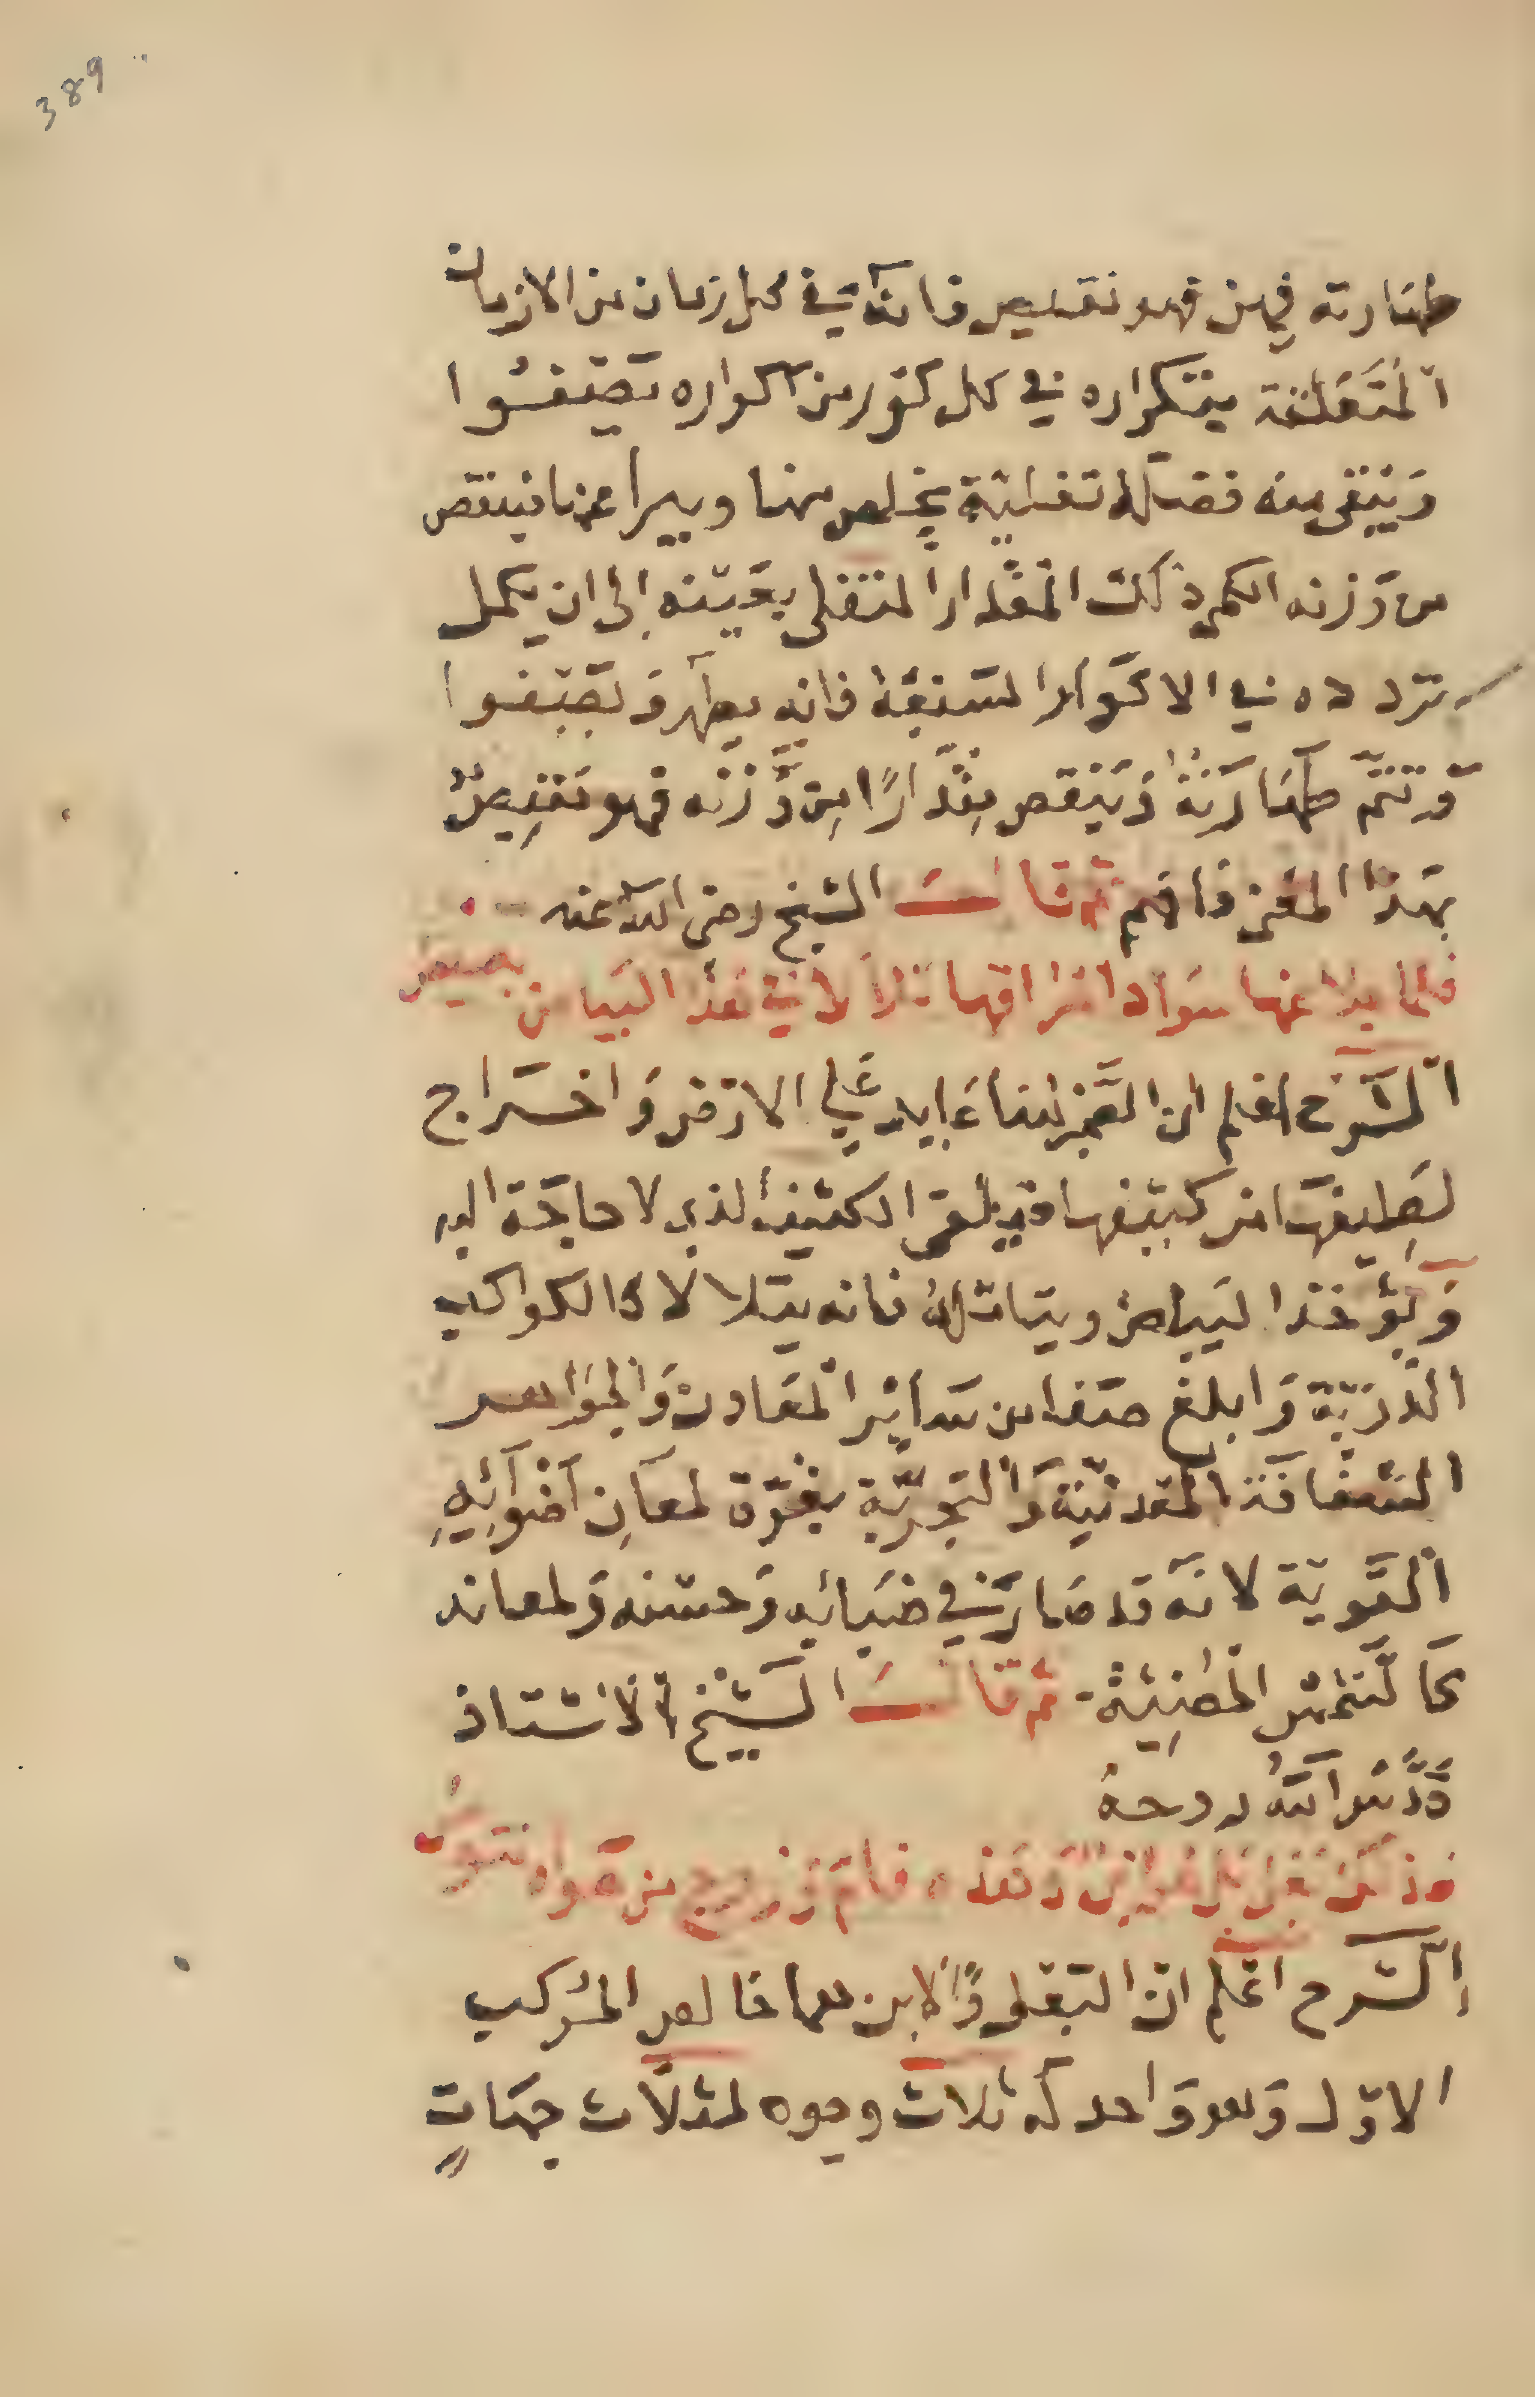 389
طهارته فمن فهو تقليص فانه في كل زمان من الازمان
المتعلقة بتكراره في كل كور من اكواره يصفوا
وينفى منه فضلة ثفلية يخلص منها ويبرا عنها فينقص
من وزنه الكم ذلك المقدار المنتفى بعينه الى ان يكمل
تردده في الاكوار السبعة فانه يطهر ويصفوا
وتتم طهارته وينقص مقدارا من وزنه فهو تقليص
بهذا المعنى فافهم ثم قال الشيخ رضى الله عنه
فلما جلا عنها سواد احتراقها تلألأ فيه هذا البياض بصيص
الشرح اعلم ان القمر ايضا عايد على الارض واخراج
لطيفها من كثيفها فيلقى الكثيف الذي لا حاجة اليه
ويؤخذ البياض فانه يتلألأ كالكواكب
الدرية وابلغ صفا من سائر المعادن والجواهر
الشفافة المعدنية والحجرية بقوة لمعان اضوائه
القوية لانه قد صار في ضيائه وحسنه ولمعانه
كالشمس المضيئة ثم قال الشيخ الاستاذ
قدس الله روحه
اعلم ان البعل والابن هما خالص المركب
الاول وهو واحد له ثلاث وجوه لثلاث جهات